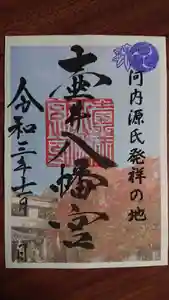 河内源氏発祥の地
壷井八幡宮
令和三年十一月 日